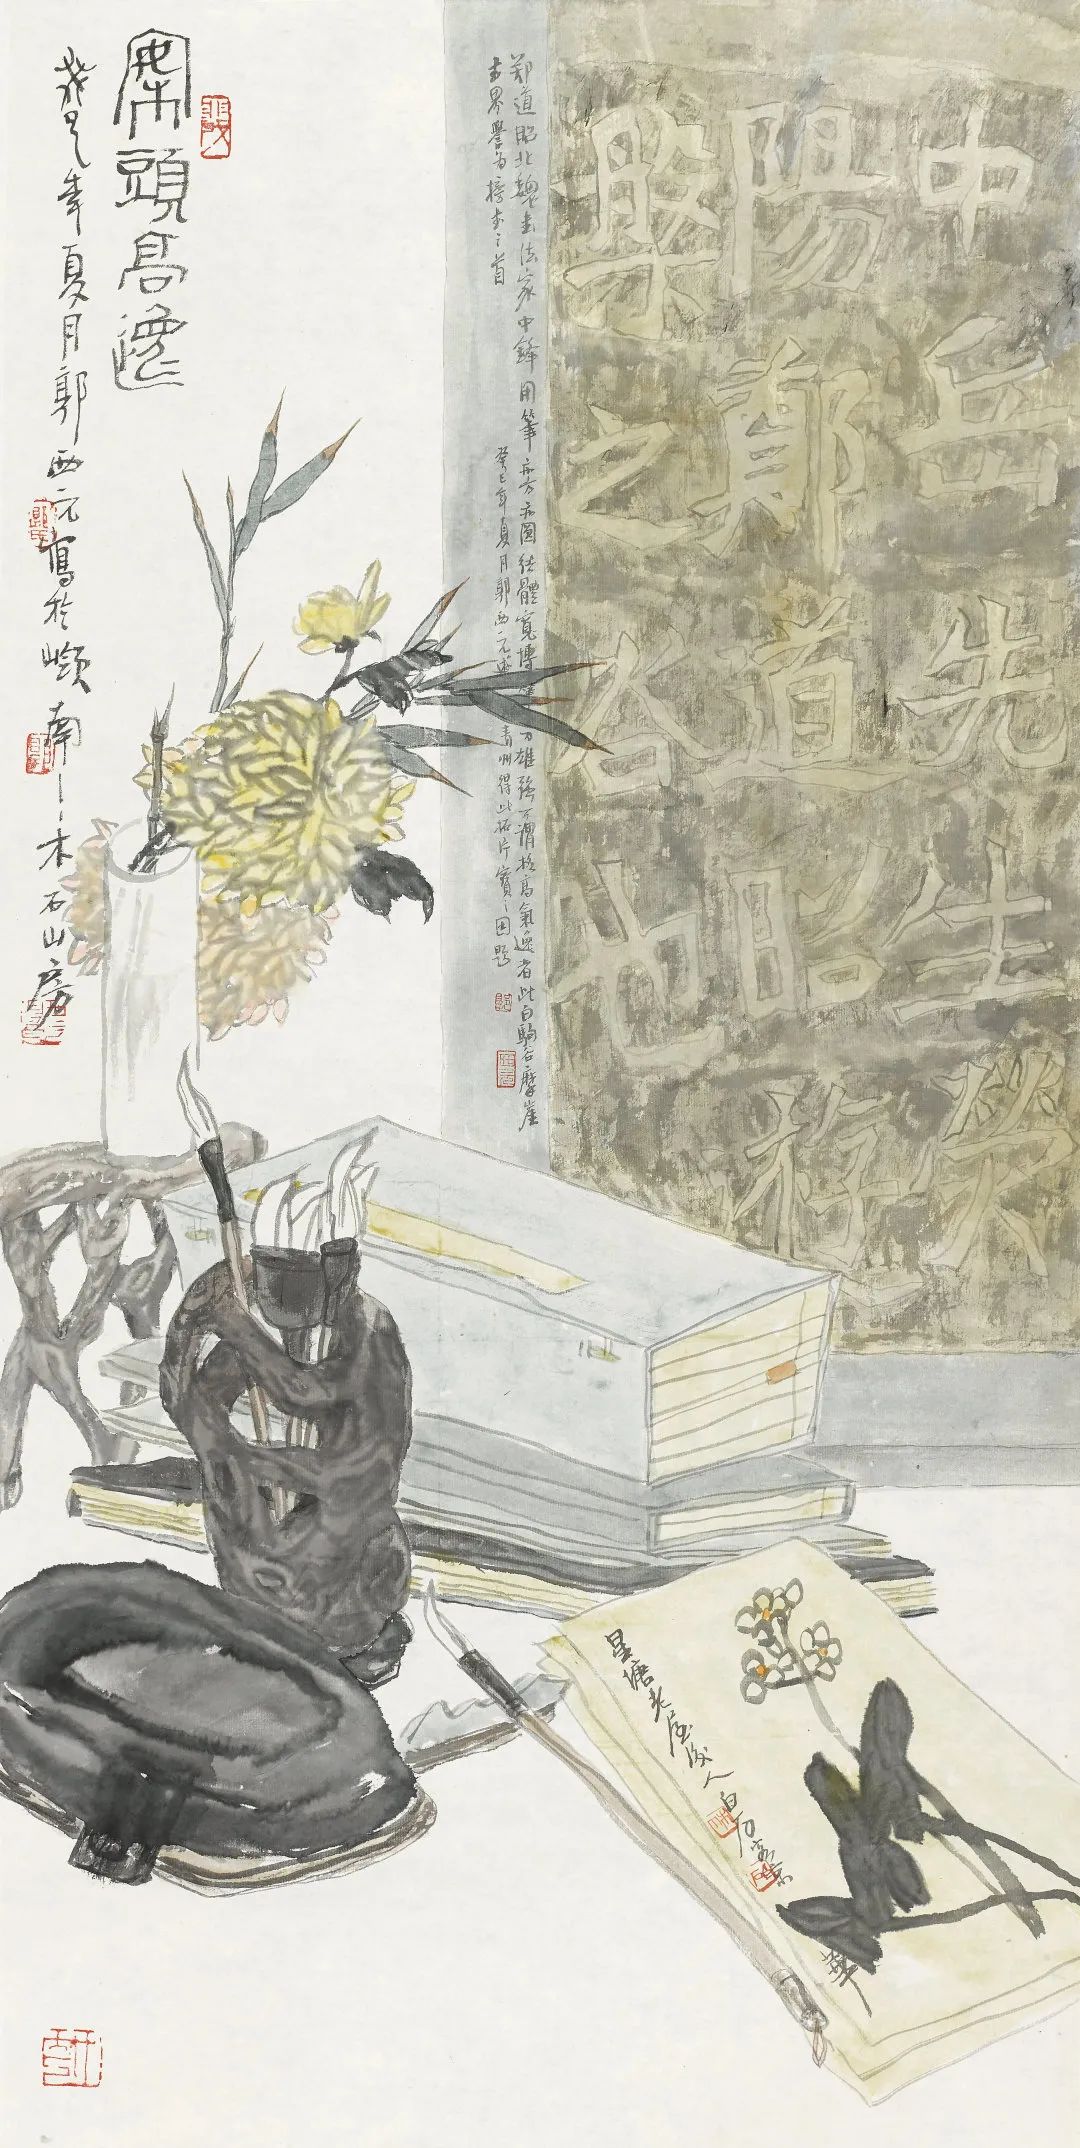 案頭高逸
癸巳年夏月郭西元寫於嶺南之木石山房
郑道昭北魏書法家中鋒用筆亦方亦圓结體寬博筆力雄強可謂格高氣逸者此白駒谷摩崖
書界譽為榜書之首
癸巳年夏月郭西元 青州得此拓片寶之因題
中岳先生熒
陽鄭道昭遊
槃之谷也
星塘老屋後人白石